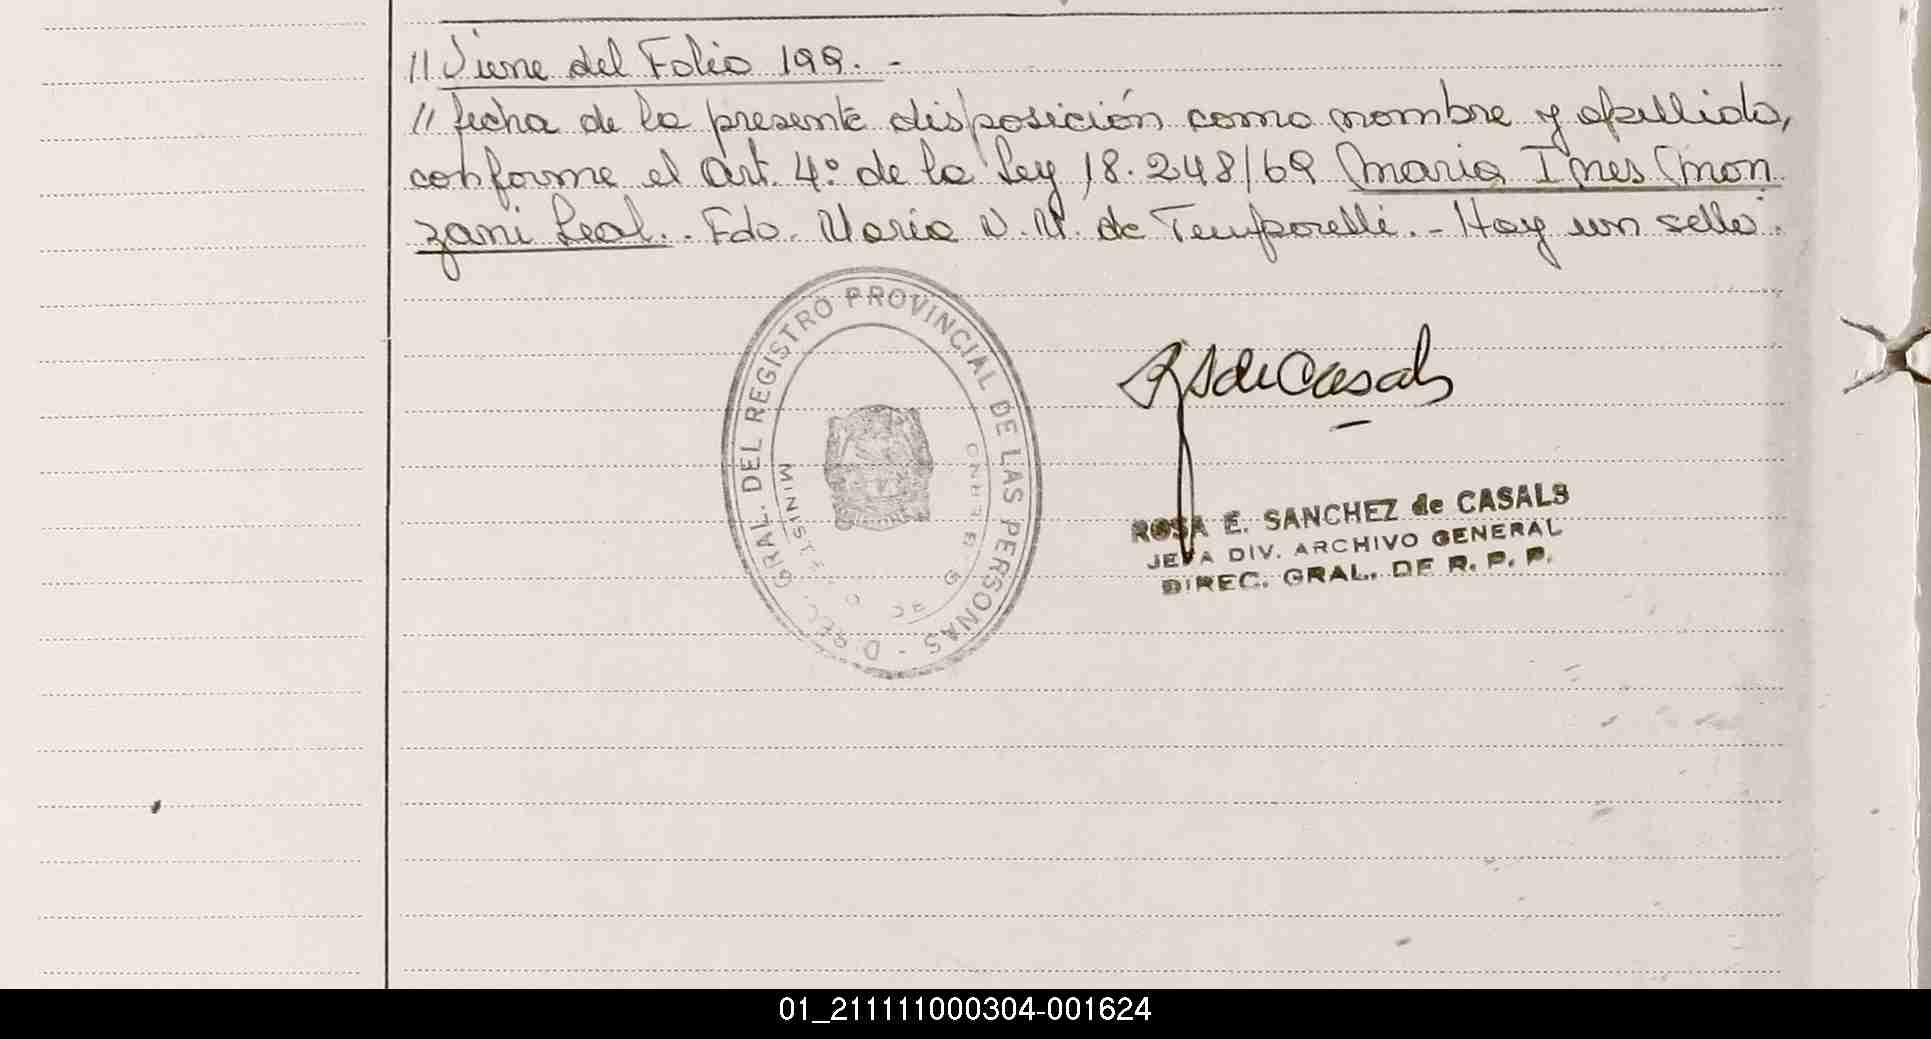 // Viene del Folio 199. -
// fecha de la presente disposición como nombre y apellido,
conforme el Art. 4º de la Ley 18.248/69 Maria Ines Mon
zani Leal. - Fdo. Maria N. M. de Temporelli. - Hay un sello.
DIREC. GRAL. DEL REGISTRO PROVINCIAL DE LAS PERSONAS -
MINISTERIO DE GOBIERNO
RSdeCasals
ROSA E. SANCHEZ de CASALS
JEFA DIV. ARCHIVO GENERAL
DIREC. GRAL. DE R. P. P.
01_211111000304-001624